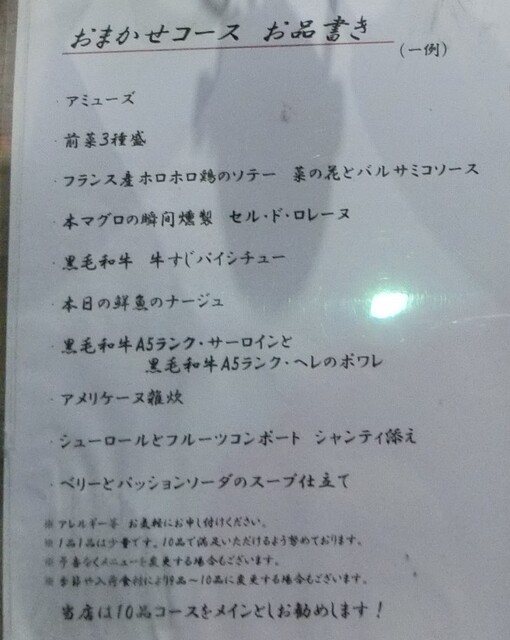 おまかせコース お品書き
(一例)
・アミューズ
・前菜3種盛
・フランス産ホロホロ鶏のソテー 菜の花とバルサミコソース
・本マグロの瞬間燻製 セル・ド・ロレーヌ
・黒毛和牛 牛すじパイシチュー
・本日の鮮魚のナージュ
・黒毛和牛A5ランク・サーロインと
黒毛和牛A5ランク・ヘレのポワレ
・アメリケーヌ雑炊
・シューロールとフルーツコンポート シャンティ添え
・ベリーとパッションソーダのスープ仕立て
※アレルギー等 お気軽にお申し付けください。
※1品1品は少量です。10品で満足いただけるよう努めております。
※予告なくメニューを変更する場合もございます。
※季節や入荷食材により9品～10品に変更する場合もございます。
当店は10品コースをメインとしお勧めします！